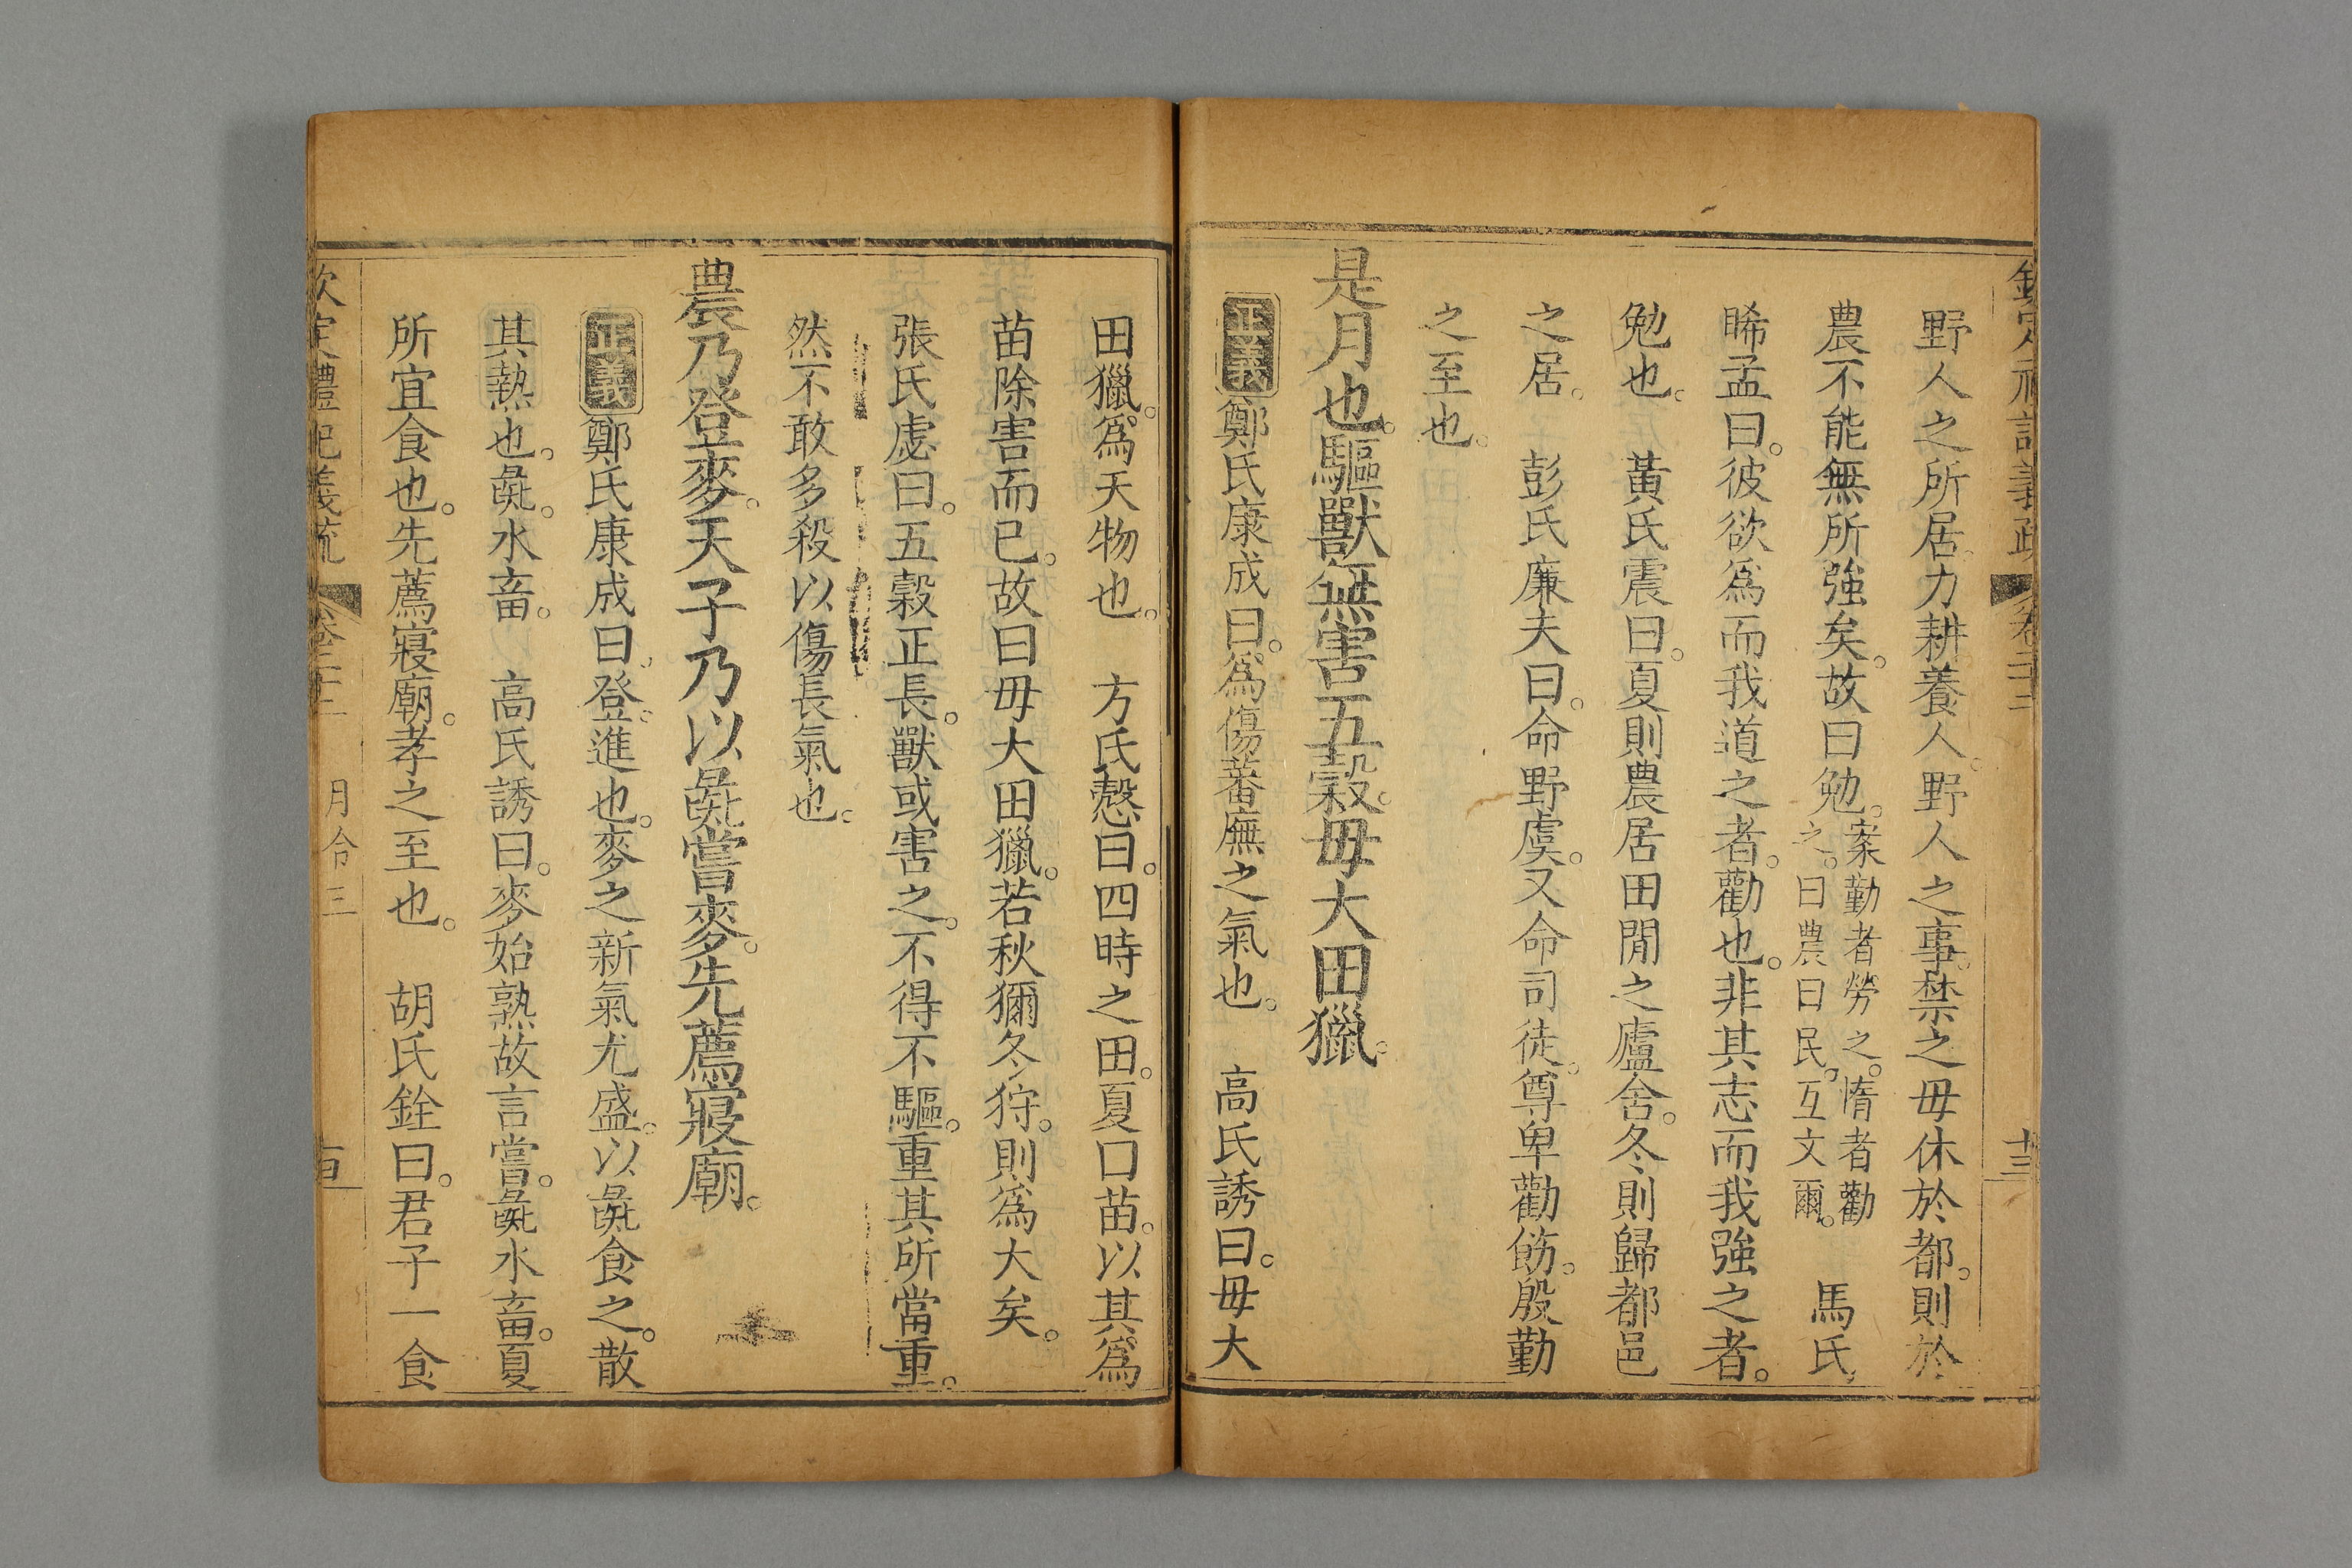 野人之所居力耕養人野人之事禁之毋休於都則於
農不能無所強矣故曰勉案勤者勞之惰者勸之曰農曰民互文爾 馬氏
睎孟曰彼欲爲而我道之者勸也非其志而我強之者
勉也 黃氏震曰夏則農居田閒之廬舍冬則歸都邑
之居 彭氏廉夫曰命野虞又命司徒尊卑勸飭殷勤
之至也
是月也驅獸無害五穀毋大田獵
正義鄭氏康成曰爲傷蕃廡之氣也 高氏誘曰毋大
田獵爲夭物也 方氏慤曰四時之田夏曰苗以其爲
苗除害而已故曰毋大田獵若秋獮冬狩則爲大矣
張氏虙曰五穀正長獸或害之不得不驅重其所當重
然不敢多殺以傷長氣也
農乃登麥天子乃以彘嘗麥先薦寢廟
正義鄭氏康成曰登進也麥之新氣尤盛以彘食之散
其熱也彘水畜 高氏誘曰麥始熟故言嘗彘水畜夏
所宜食也先薦寢廟孝之至也 胡氏銓曰君子一食
月令三